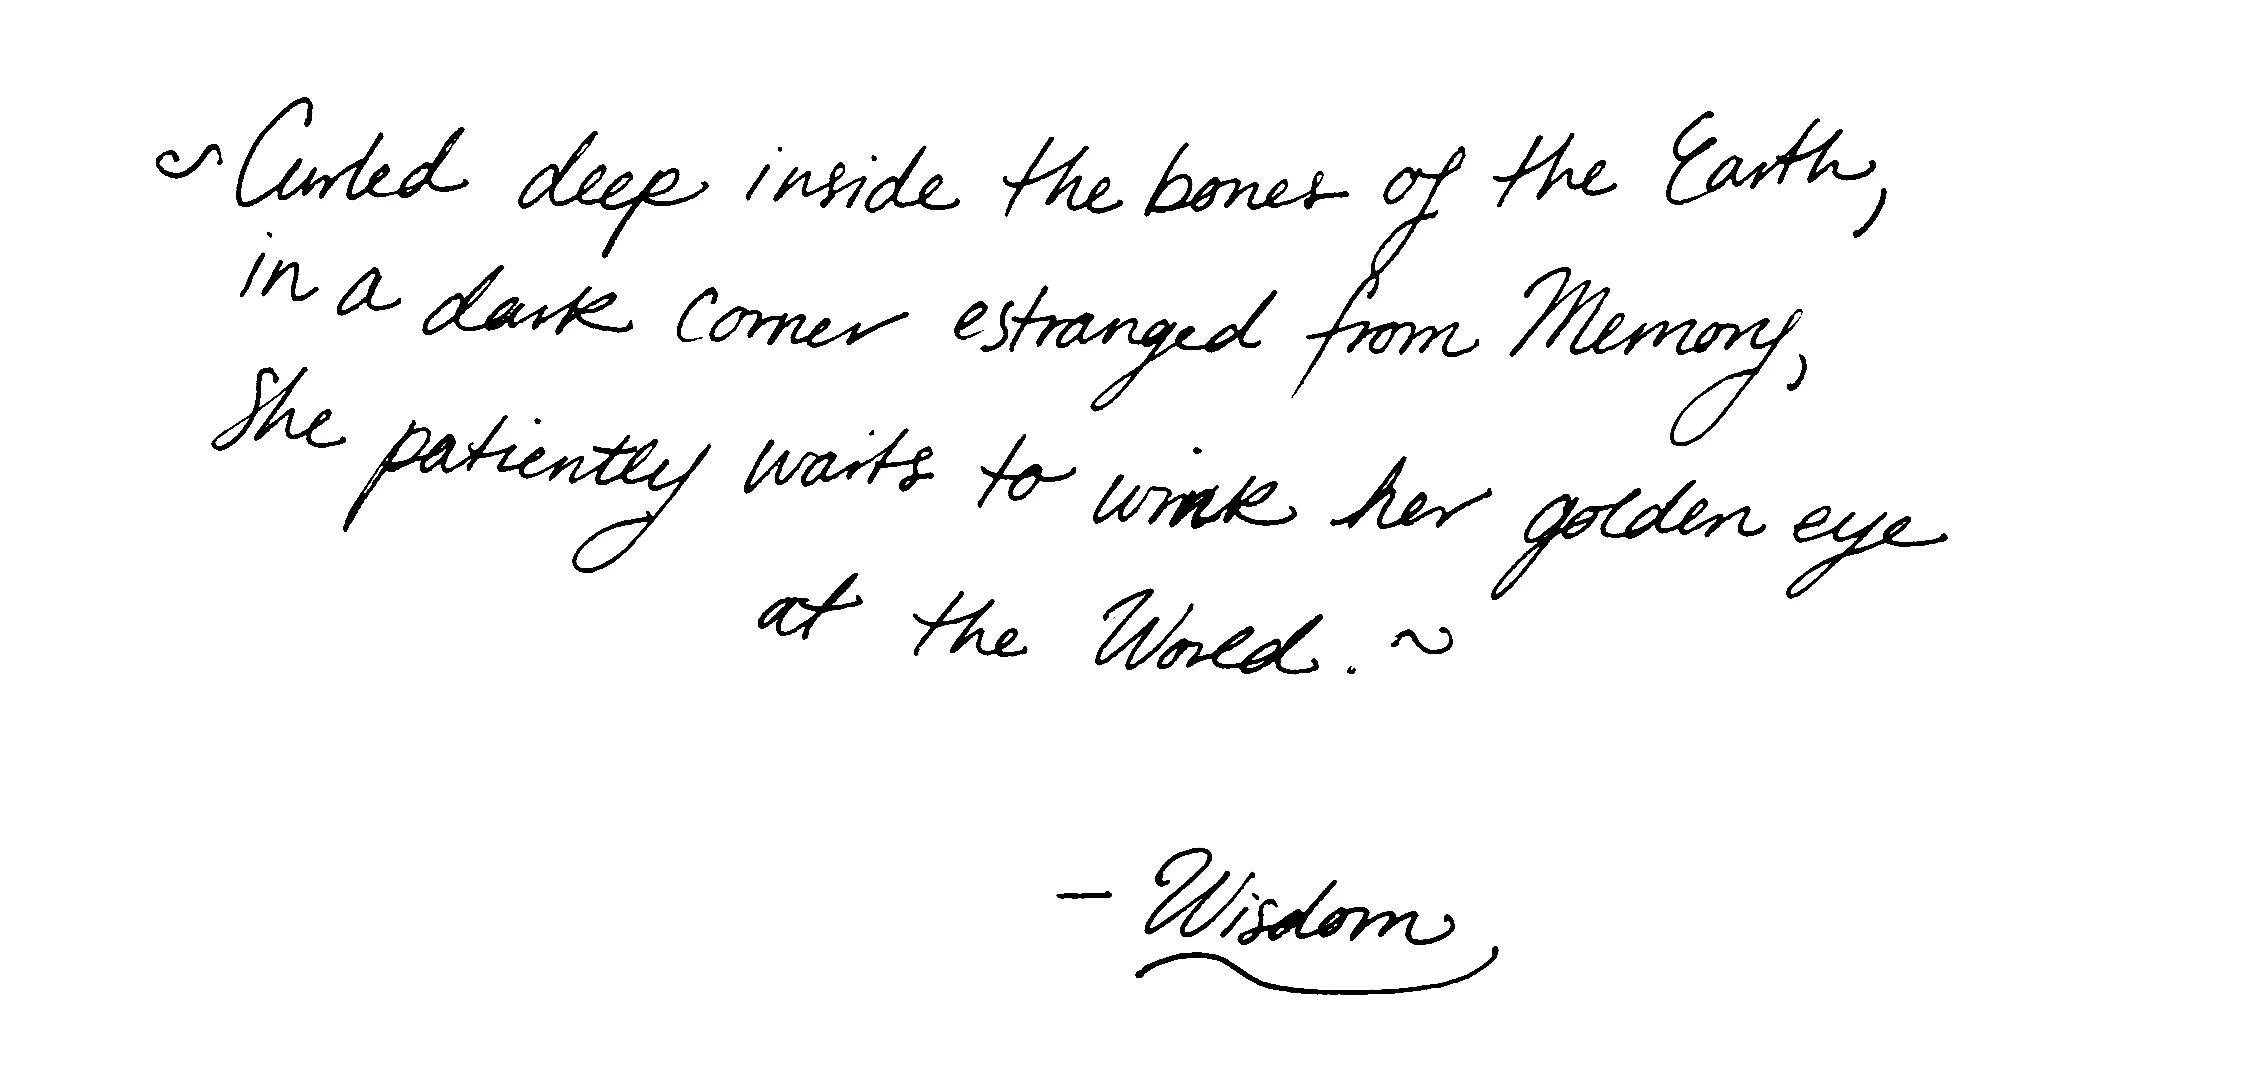 ~ Curled deep inside the bones of the Earth,
in a dark corner estranged from Memory,
She patiently waits to wink her golden eye
at the World. ~
- Wisdom